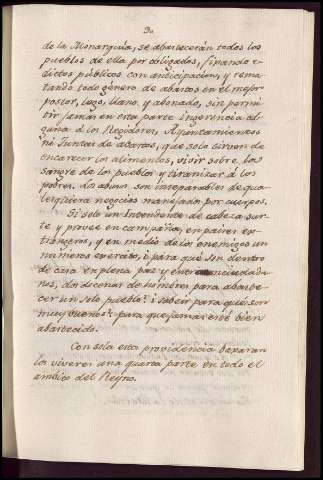 30
de la Monarquía, se abastecerán todos los
pueblos de ella por obligados, fixando e-
dictos públicos con anticipacion, y rema-
tando todo género de abastos en el mejor
postor, lego, llano, y abonado, sin permi-
tir jamás en esta parte ingerencia al-
guna á los Regidores, Ayuntamientos
ni Juntas de abastos, que solo sirven de
encarecer los alimentos, vivir sobre la
sangre de los pueblos y tiranizar á los
pobres. Los abusos son inseparables de qua-
lesquiera negocios manejado por cuerpos.
Si solo un Intendente de cabeza sur-
te y provee en campaña, en paises ex-
trangeros, y en medio de los enemigos un
numeroso exercito, ¿para qué son dentro
de casa en plena paz y entre ciudada-
nos, dos docenas de hombres para abaste-
cer un solo pueblo? ¿Sabeis para qué son
muy buenos? para que jamas esté bien
abastecido.
Con sola esta providencia baxaran
los viveres una quarta parte en todo el
ambito del Reyno.